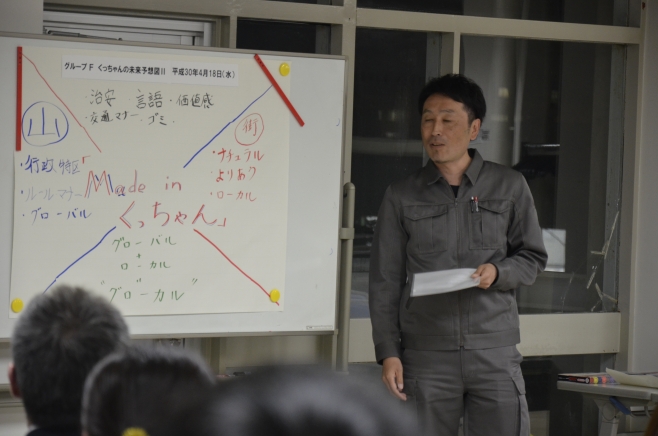 グループF くっちゃんの未来予想図Ⅱ 平成30年4月18日(水)
・治安 言語・価値感
・交通マナー・ゴミ・
山
・行政特区
・ルールマナー
・グローバル
街
・ナチュラル
・よりあり
・ローカル
「Made in
くっちゃん」
グローバル
+
ローカル
"グローカル"